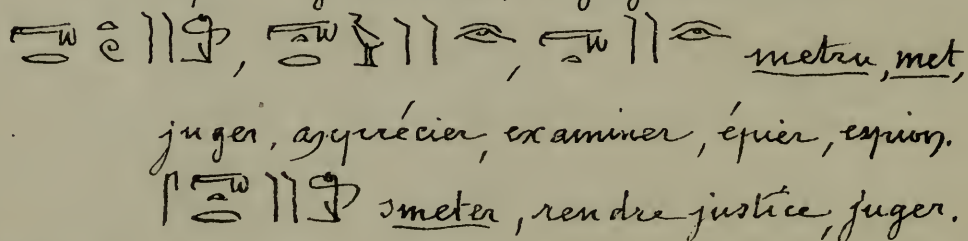 metru, met,
juger, apprécier, examiner, épier, espion.
smeter, rendre justice, juger.